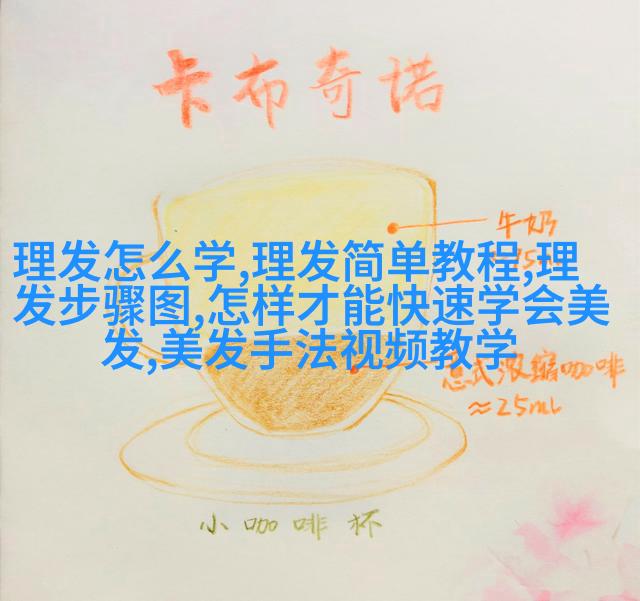 卡布奇诺
牛奶
理发怎么学,理发简单教程,理
发步骤图,怎样才能快速学会美
发,美发手法视频教学
意式浓缩咖啡
≈25ml
小咖啡杯